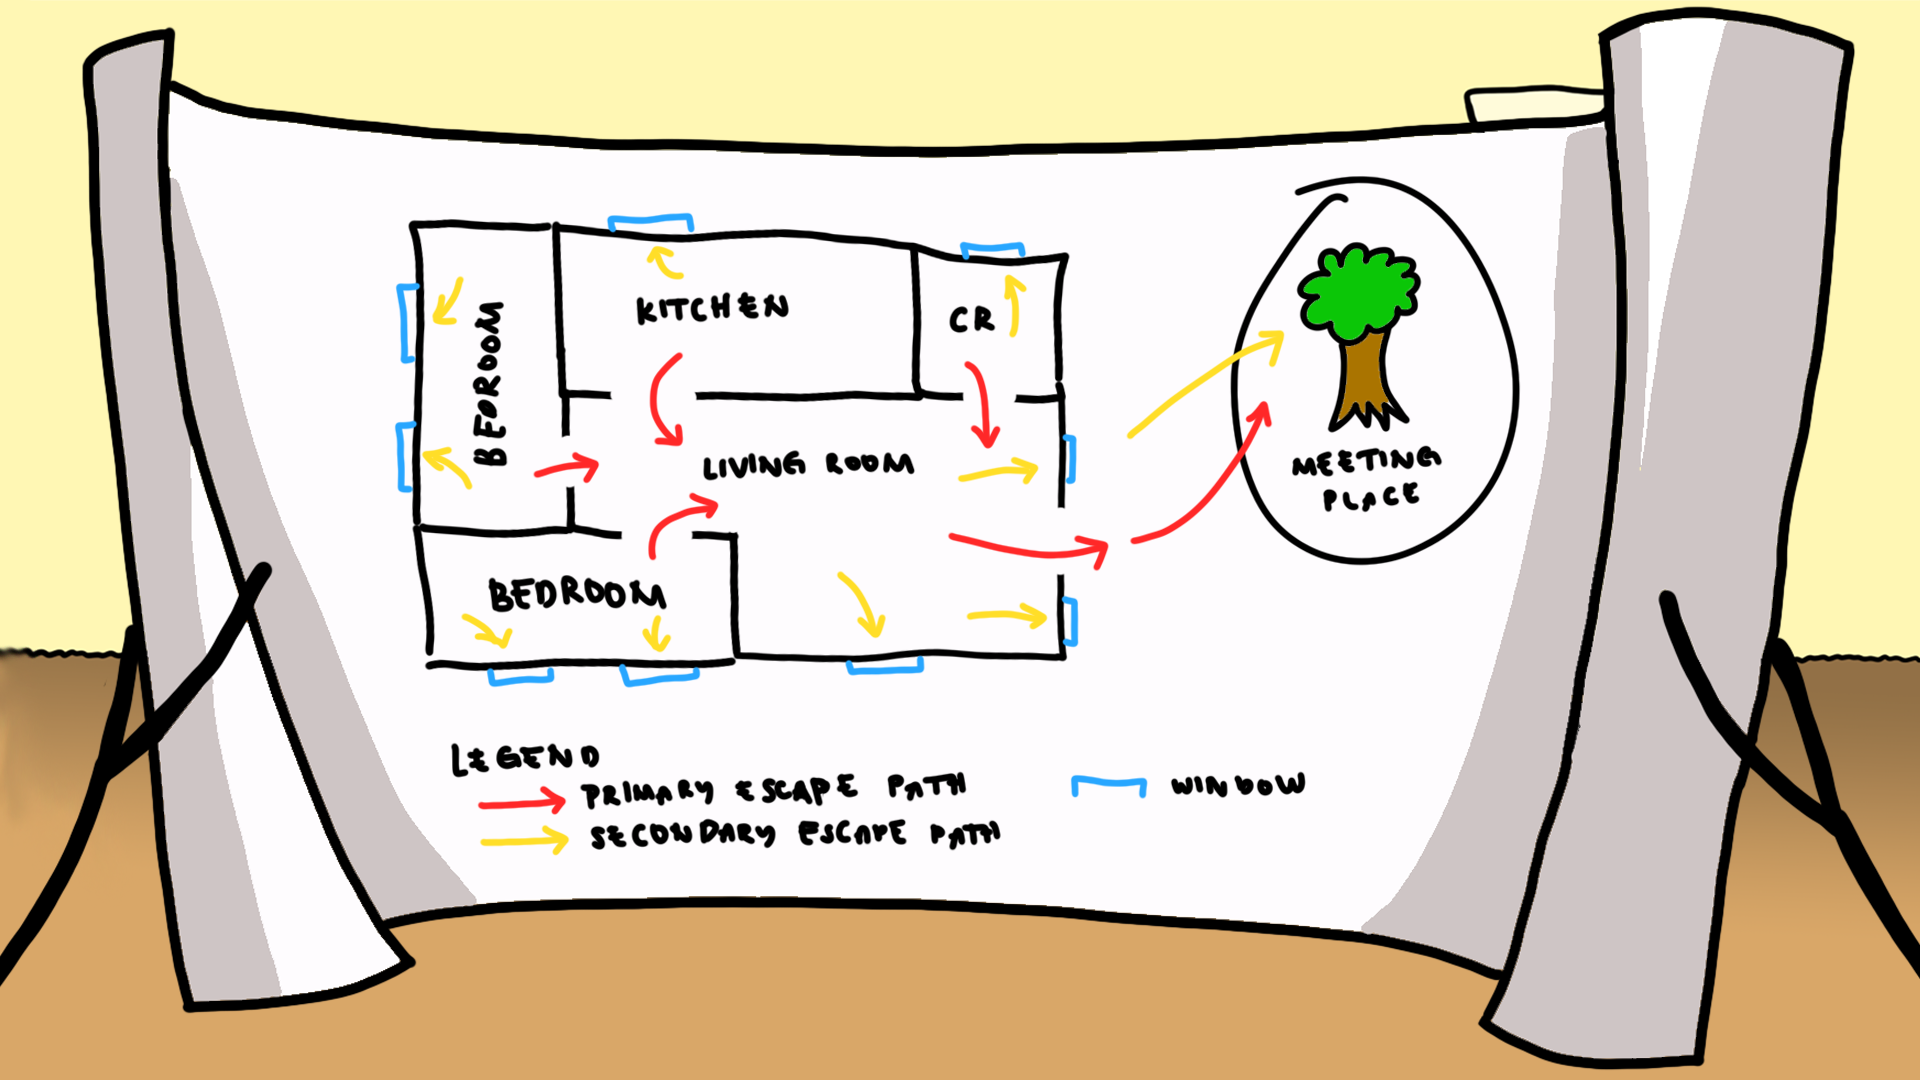 KITCHEN
CR
BEDROOM
LIVING ROOM
BEDROOM
MEETING
PLACE
LEGEND
PRIMARY ESCAPE PATH
SECONDARY ESCAPE PATH
WINDOW